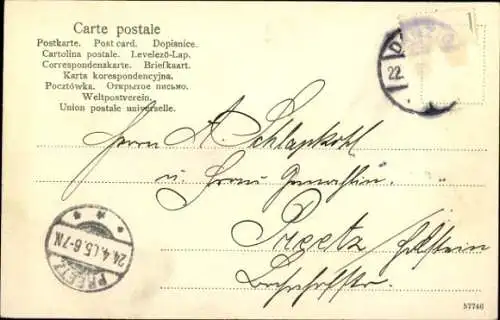 Carte postale
Postkarte. Post card. Dopisnice.
Cartolina postale. Levelező-Lap.
Correspondenzkarte. Briefkaart.
Karta korespondencyjna.
Pocztówka. Открытое письмо.
Weltpostverein.
Union postale universelle.
22.
Herrn A. Schlapkohl
u. Frau Gemahlin.
Preetz Holstein
Bahnhofstr.
PREETZ
24.4.05.6-7N
57746